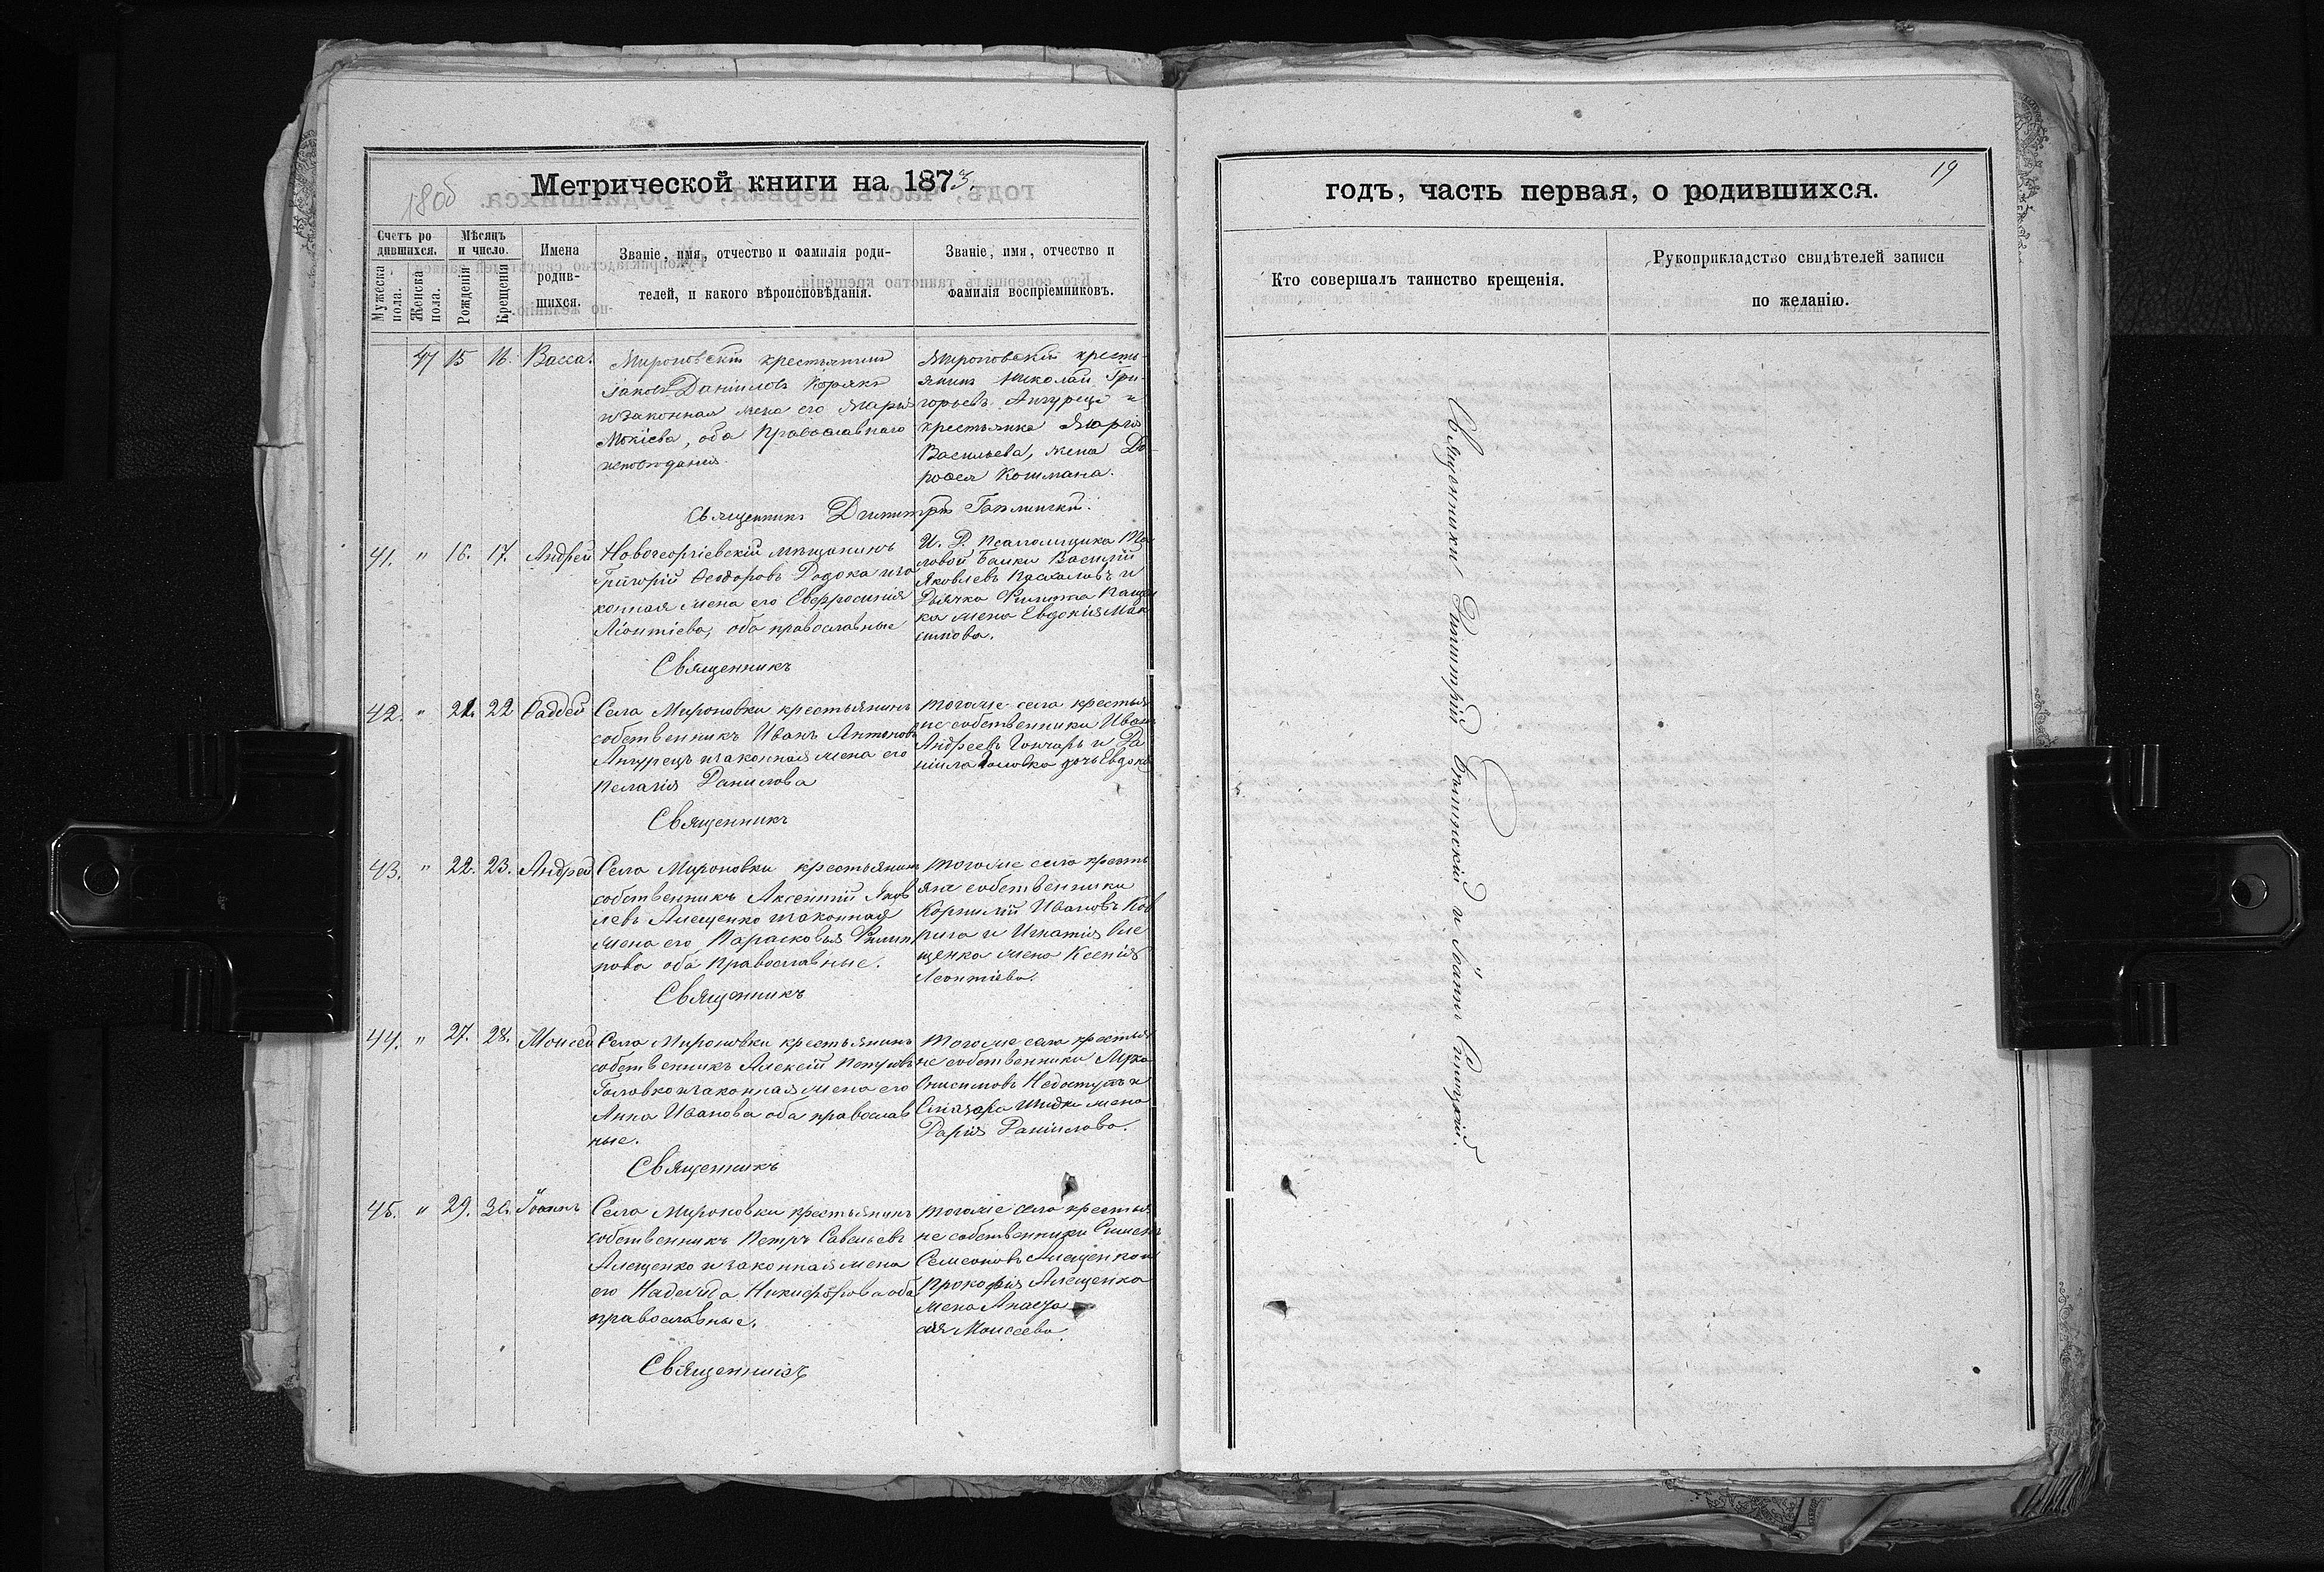 Метрической книги на 1873.
18об
Счетъ ро
дившихся.
Мужеска
пола.
Женска
пола.
Мѣсяцъ
и число.
Рожденія
Крещенія
Имена
родив-
шихся.
Званіе, имя, отчество и фамилія роди-
телей, и какого вѣроисповѣданія.
Званіе, имя, отчество и
фамилія воспріемниковъ.
47 15 16. Васса.
Мироновскій крестьянинъ
Іаковъ Даніиловъ Корякъ
и законная жена его Марія
Мокіева, оба Православнаго
исповѣданія
Мироновскій кресть-
янинъ Николай Гри-
горьевъ Анцурецъ и
крестьянка Марія
Васильева, жена До-
рофея Кошмана.
Священникъ Димитрій
41. " 16. 17. Андрей
Новогеоргіевскій мѣщанинъ
Григорій Ѳеодоровъ Додока и за
конная жена его Евфросинія
Леонтіева, оба православные
И. Д. Псаломщика
ловой Балки Василій
Яковлевъ и
Дьячка Филиппа
ка жена Евдокія Мак
симова.
Священникъ
42. " 21. 22 Ѳаддей
Села Мироновки крестьянинъ
собственникъ Иванъ Антоновъ
Анцурецъ и законная жена его
Пелагія Данилова
тогоже села крестья
не собственники Иванъ
Андреевъ Гончаръ и Да
ніила Головка дочь Евдокія
Священникъ
43. " 22. 23. Андрей
Села Мироновки крестьянинъ
собственникъ Аксентій Яков
левъ Алещенко и законная
жена его Парасковья Филип
пова оба православные.
тогоже села кресть
яне собственники
Корнилій Ивановъ Ков
рига и Игнатія Але
щенка жена Ксенія
Леонтіева.
Священникъ
44. " 27. 28. Моисей
Села Мироновки крестьянинъ
собственникъ Алексій Петровъ
Головко и законная жена его
Анна Иванова оба православ
ные.
тогоже села крестья
не собственники Лука
Онисимовъ Недоступъ и
жена
Дарія Даніилова.
Священникъ
45. " 29. 30. Іоаннъ
Села Мироновки крестьянинъ
собственникъ Петръ Савельевъ
Алещенко и законная жена
его Надежда Никифорова оба
православные.
тогоже села крестья
не собственники Симеонъ
Семеоновъ Алещенко и
Прокофія Алещенка
жена Анаста
сія Моисеева.
Священникъ
19
годъ, часть первая, о родившихся.
Кто совершалъ таинство крещенія.
Рукоприкладство свидѣтелей записи
по желанію.
Священники Димитрій и Іоаннъ